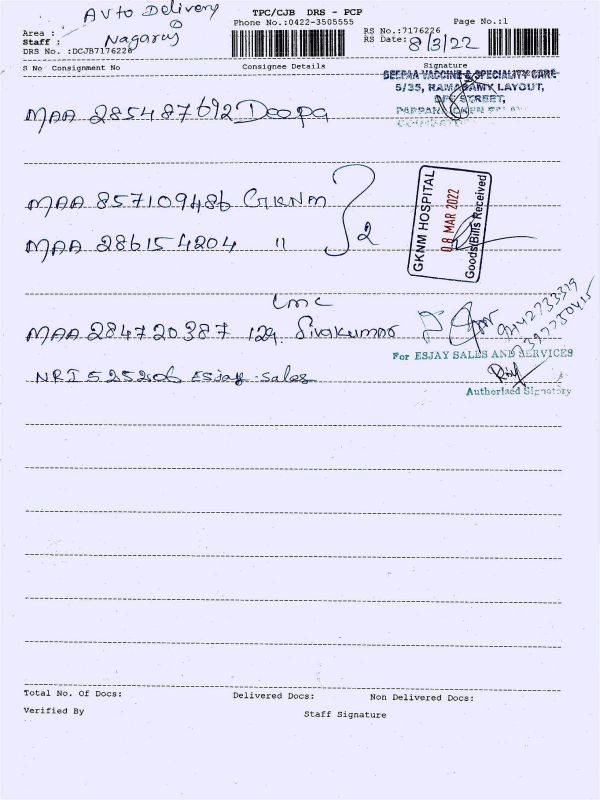 Auto Delivery
TPC/CJB DRS - PCP
Phone No.:0422-3505555
Page No.:1
Area :
Staff : Nagaraj
DRS No. :DCJB7176226
RS No.:7176226
RS Date: 8/3/22
S No Consignment No Consignee Details Signature
DEEPAA VACCINE & SPECIALITY CARE
5/35, RAMASAMY LAYOUT,
STREET,
MAA 285487692 Deepa
MAA 857109486 GKNM
MAA 286154204 "
2
GKNM HOSPITAL
08 MAR 2022
Goods/Bills Received
LMC
MAA 284720387 129. Sivakumar
9442733319
For ESJAY SALES AND SERVICES
NRI 525206 Esjay Sales
Authorised Signatory
Total No. Of Docs: Delivered Docs: Non Delivered Docs:
Verified By Staff Signature